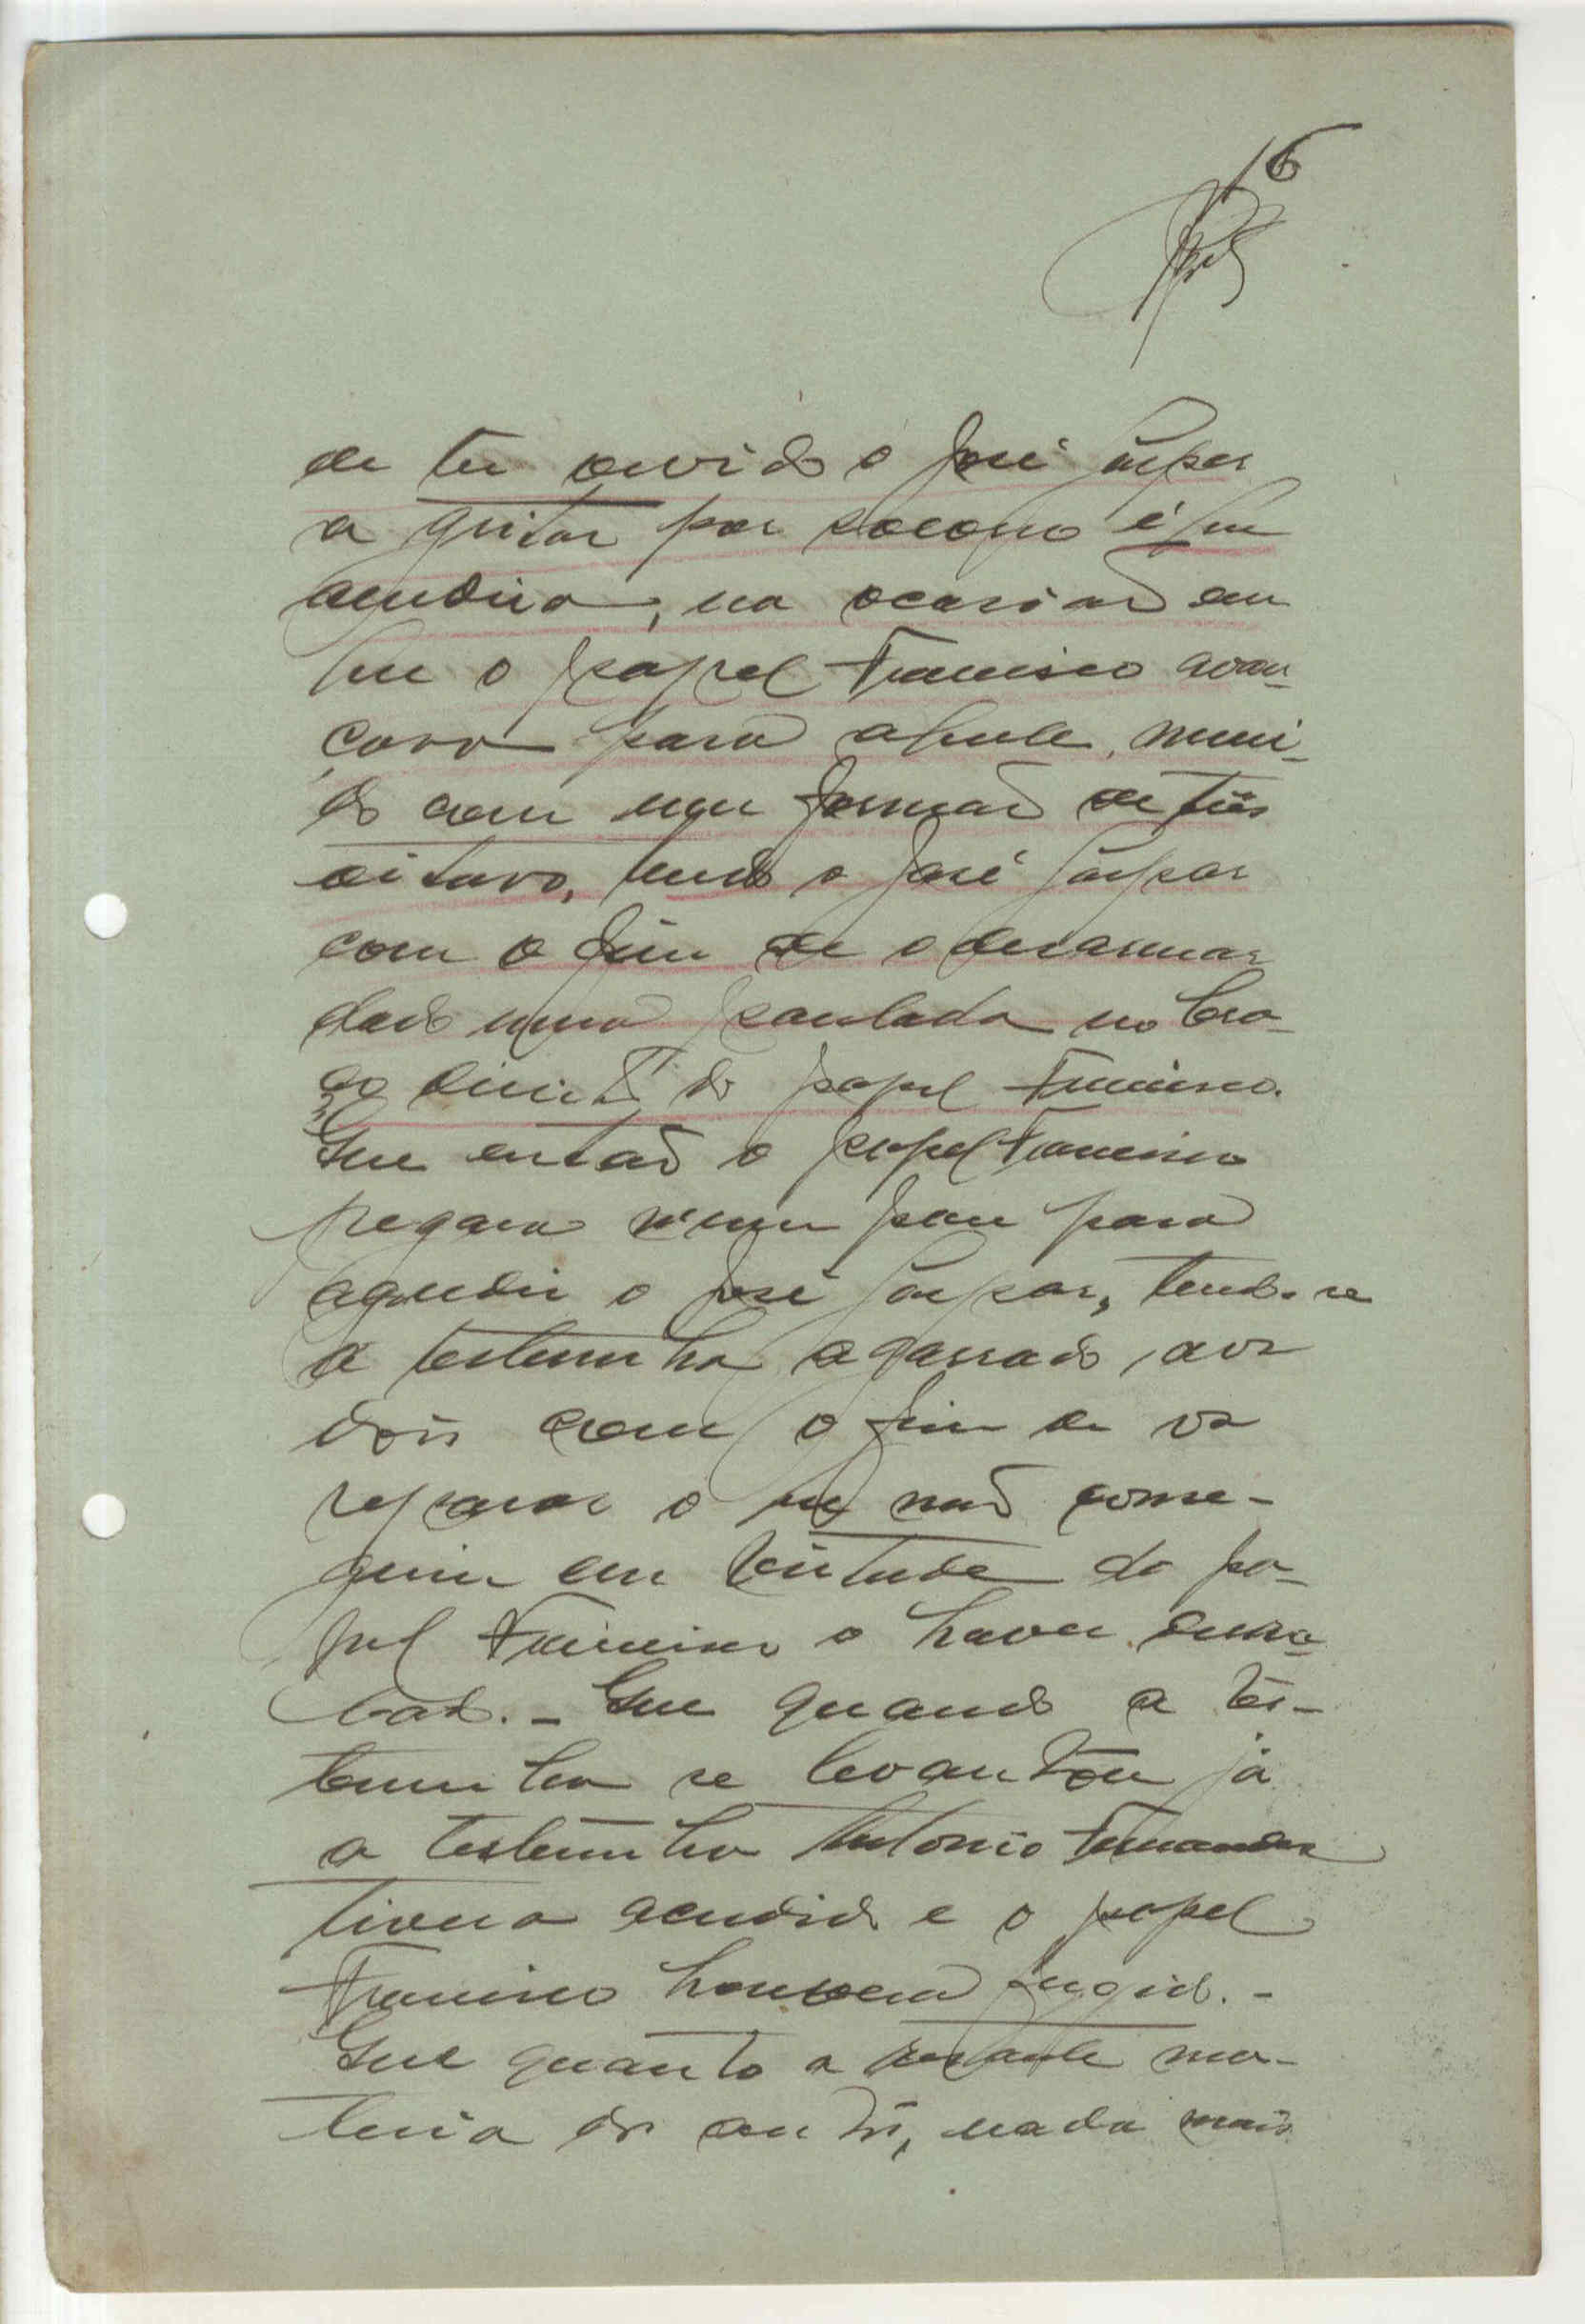 16
de ter ouvido o José Gaspar
a gritar por socorro é que
acudira, na ocasião em
que o papel Francisco avan-
çava para aquele, muni-
do com um formão de três
oitavo, tendo o José Gaspar
com o fim de o desarmar
dado uma paulada no bra-
ço direito do papel Francisco.
Que então o papel Francisco
pegara n'um pau para
agredir o José Gaspar, tendo-se
a testemunha agarrado aos
dois com o fim de os
separar o que não conse-
guiu em virtude do pa-
pel Francisco o haver derru-
bado. - Que quando a tes-
temunha se levantou já
a testemunha Antonio Fernandes
tivera acudido e o papel
Francisco houvera fugido. -
Que quanto a restante ma-
teria do auto, nada mais